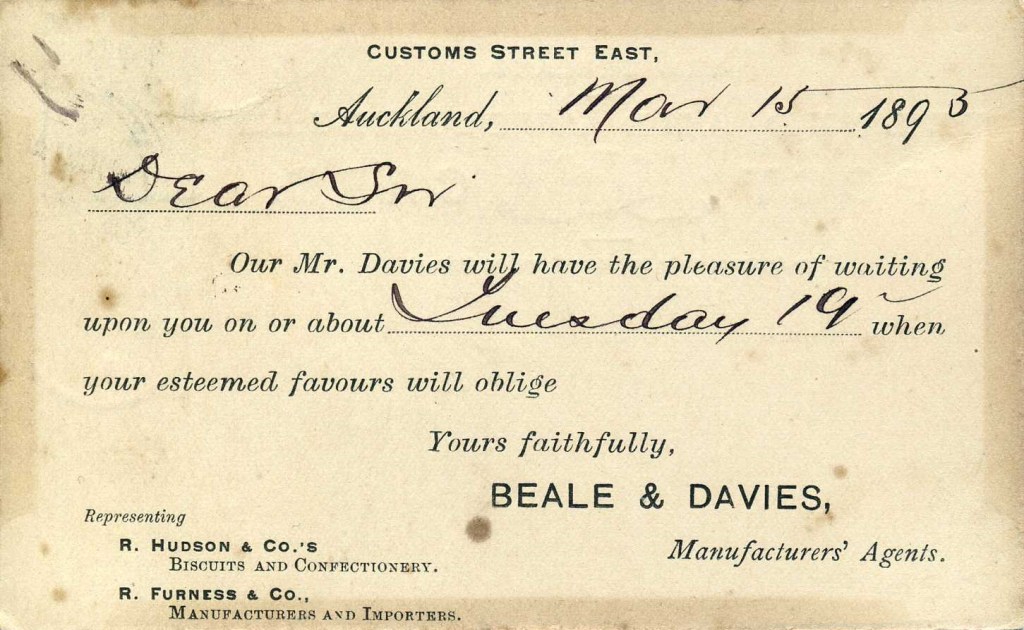 CUSTOMS STREET EAST,
Auckland, Mar 15 1895
Dear Sir
Our Mr. Davies will have the pleasure of waiting
upon you on or about Tuesday 19 when
your esteemed favours will oblige
Yours faithfully,
BEALE & DAVIES,
Manufacturers' Agents.
Representing
R. HUDSON & CO.'S
BISCUITS AND CONFECTIONERY.
R. FURNESS & CO.,
MANUFACTURERS AND IMPORTERS.